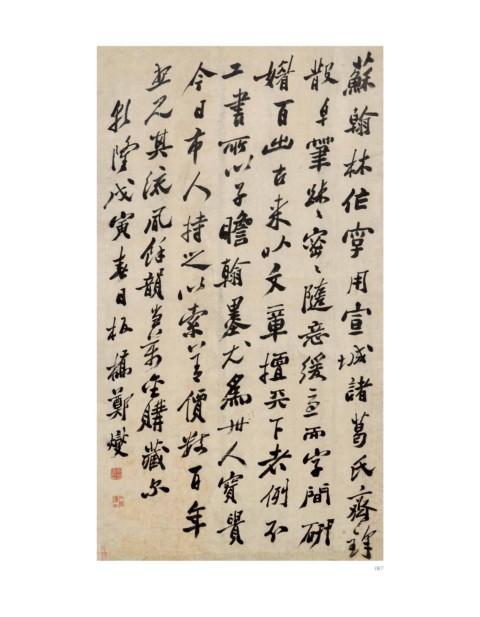 蘇翰林作字用宣城諸葛氏齊鋒
散卓筆疎〻密〻隨意緩急而字間妍
媚百出古來以文章擅天下者例不
工書所以子瞻翰墨尤為世人寶貴
今日市人持之以索善價數百年
見其流風餘韻當萬金購藏爾
乾隆戊寅春日板橋鄭燮